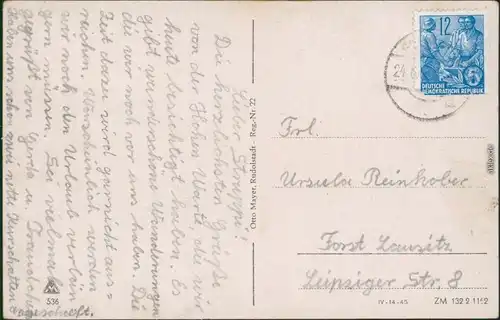 Lieber Struppi!
Die herzlichsten Grüße
von der Hohen Warte, die wir
heute besichtigt haben. Es
gibt wunderschöne Wanderungen
die wir noch vor uns haben. Die
Zeit dazu wird garnicht aus-
reichen. Wahrscheinlich werden
wir noch den Urlaub verlän
gern müssen. Sei vielmals
gegrüßt von Gerda u. Traudchen
Haben uns schon zwei nette Kurschatten
angeschafft.
536
Otto Mayer, Rudolstadt - Reg.-Nr. 22
12
DEUTSCHE
DEMOKRATISCHE REPUBLIK
5
Frl.
Ursula Reinkober
Forst Lausitz
Leipziger Str. 8
IV-14-45 ZM 132 2 1152